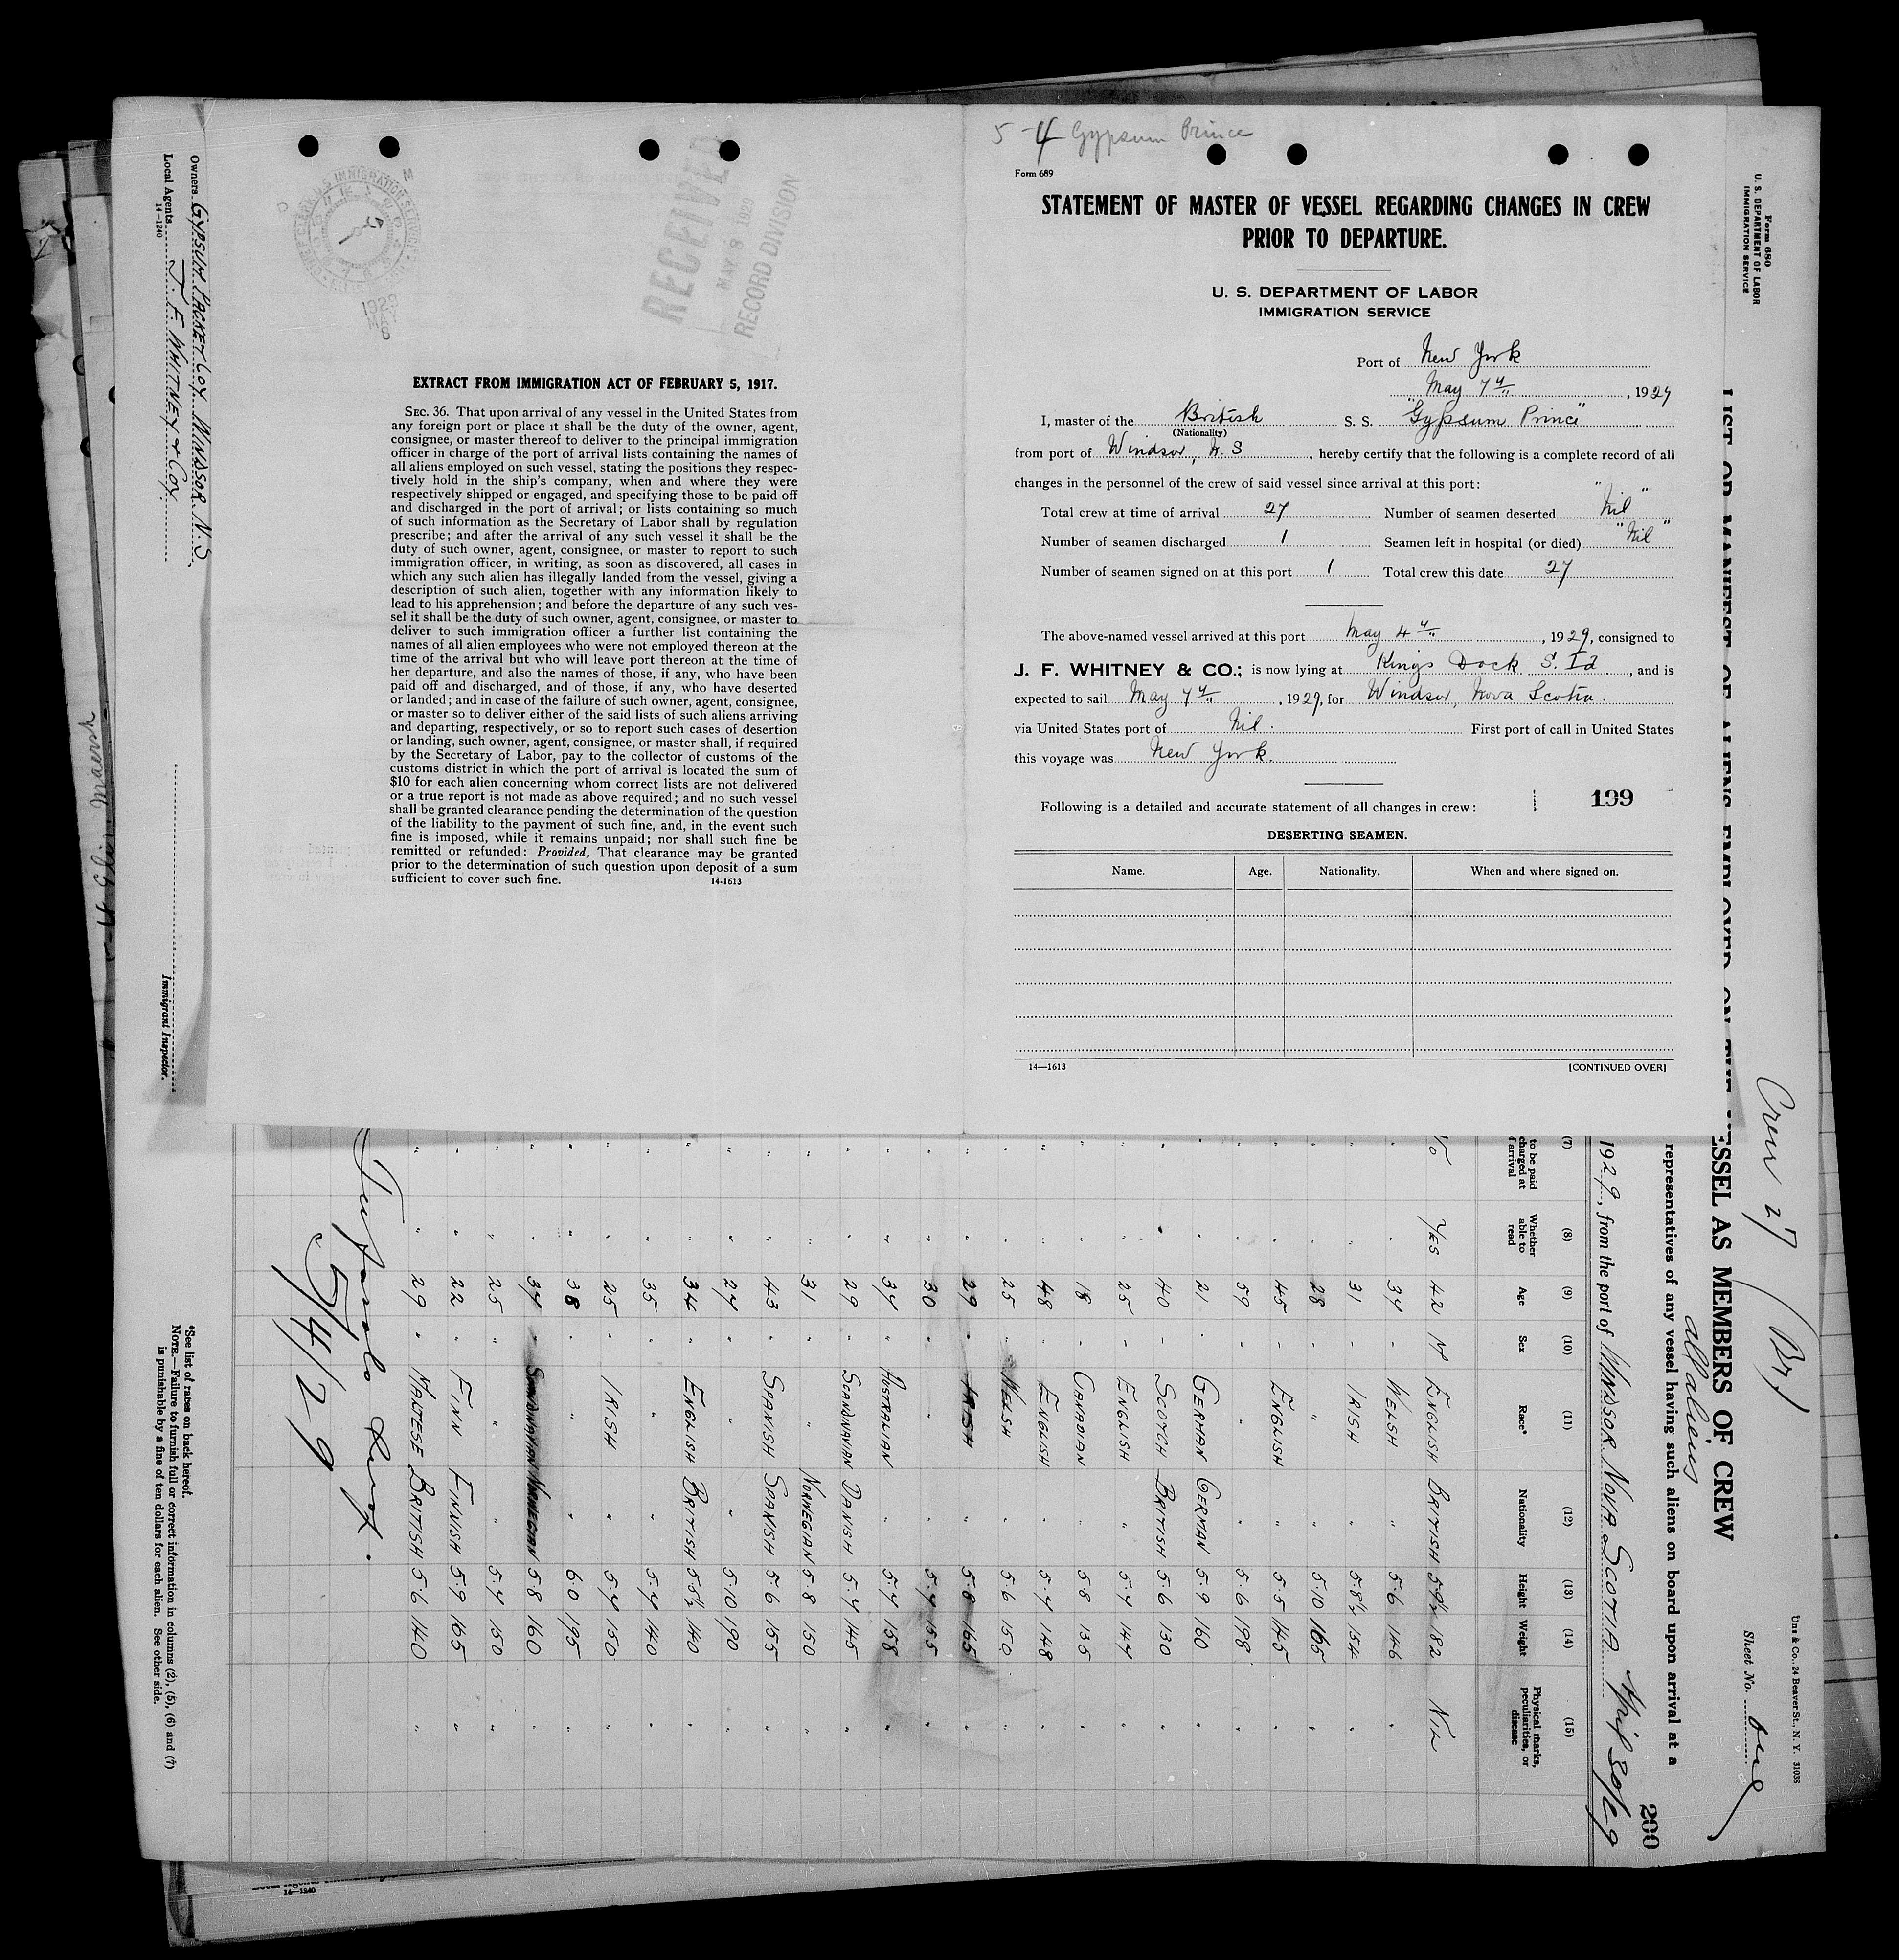 5-4 Gypsum Prince
Form 689
STATEMENT OF MASTER OF VESSEL REGARDING CHANGES IN CREW
PRIOR TO DEPARTURE.
U. S. DEPARTMENT OF LABOR
IMMIGRATION SERVICE
Port of New York
May 7th, 1929
I, master of the British S. S. "Gypsum Prince"
(Nationality)
from port of Windsor, N. S, hereby certify that the following is a complete record of all
changes in the personnel of the crew of said vessel since arrival at this port:
Total crew at time of arrival 27 Number of seamen deserted "Nil"
Number of seamen discharged 1 Seamen left in hospital (or died) "Nil"
Number of seamen signed on at this port 1 Total crew this date 27
The above-named vessel arrived at this port May 4th, 1929, consigned to
J. F. WHITNEY & CO.; is now lying at Kings Dock S. Id, and is
expected to sail May 7th, 1929, for Windsor, Nova Scotia.
via United States port of Nil. First port of call in United States
this voyage was New York.
Following is a detailed and accurate statement of all changes in crew:
199
DESERTING SEAMEN.
Name. Age. Nationality. When and where signed on.
14—1613 [CONTINUED OVER]
RECEIVED
MAY 8 1929
RECORD DIVISION
EXTRACT FROM IMMIGRATION ACT OF FEBRUARY 5, 1917.
SEC. 36. That upon arrival of any vessel in the United States from
any foreign port or place it shall be the duty of the owner, agent,
consignee, or master thereof to deliver to the principal immigration
officer in charge of the port of arrival lists containing the names of
all aliens employed on such vessel, stating the positions they respec-
tively hold in the ship's company, when and where they were
respectively shipped or engaged, and specifying those to be paid off
and discharged in the port of arrival; or lists containing so much
of such information as the Secretary of Labor shall by regulation
prescribe; and after the arrival of any such vessel it shall be the
duty of such owner, agent, consignee, or master to report to such
immigration officer, in writing, as soon as discovered, all cases in
which any such alien has illegally landed from the vessel, giving a
description of such alien, together with any information likely to
lead to his apprehension; and before the departure of any such ves-
sel it shall be the duty of such owner, agent, consignee, or master to
deliver to such immigration officer a further list containing the
names of all alien employees who were not employed thereon at the
time of the arrival but who will leave port thereon at the time of
her departure, and also the names of those, if any, who have been
paid off and discharged, and of those, if any, who have deserted
or landed; and in case of the failure of such owner, agent, consignee,
or master so to deliver either of the said lists of such aliens arriving
and departing, respectively, or so to report such cases of desertion
or landing, such owner, agent, consignee, or master shall, if required
by the Secretary of Labor, pay to the collector of customs of the
customs district in which the port of arrival is located the sum of
$10 for each alien concerning whom correct lists are not delivered
or a true report is not made as above required; and no such vessel
shall be granted clearance pending the determination of the question
of the liability to the payment of such fine, and, in the event such
fine is imposed, while it remains unpaid; nor shall such fine be
remitted or refunded: Provided, That clearance may be granted
prior to the determination of such question upon deposit of a sum
sufficient to cover such fine. 14-1613
Form 680
U. S. DEPARTMENT OF LABOR
IMMIGRATION SERVICE
Crew 27 (Br)
Sheet No. one
24 Beaver St., N. Y. 31038
LIST OR MANIFEST OF ALIENS EMPLOYED ON THE VESSEL AS MEMBERS OF CREW
all aliens
representatives of any vessel having such aliens on board upon arrival at a
200
1929, from the port of WINDSOR NOVA SCOTIA April 30/29
(7) (8) (9) (10) (11) (12) (13) (14) (15)
to be paid charged at arrival Whether able to read Age Sex Race* Nationality Height Weight Physical marks, peculiarities, or disease
YES 42 M ENGLISH BRITISH 5 9½ 182 NIL
" 37 - WELSH " 5·6 146 "
" 31 - IRISH " 5·8½ 154 "
" 28 " " " 5·10 165 "
" 45 - ENGLISH " 5·5 145 "
" 59 - " " 5·6 198 "
" 21 - GERMAN GERMAN 5·9 160 "
" 40 - SCOTCH BRITISH 5·6 130 "
" 25 - ENGLISH " 5·7 147 "
" 18 - CANADIAN " 5·8 135 "
" 48 - ENGLISH " 5·7 148 "
" 25 " WELSH " 5·6 150 "
" 29 " IRISH " 5·8 165 "
" 30 " " " 5·7 155 "
" 37 " AUSTRALIAN " 5·7 158 "
" 29 " SCANDNAVIAN DANISH 5·7 145 "
" 31 " " NORWEGIAN 5·8 150 "
" 43 " SPANISH SPANISH 5·6 155 "
" 27 " " " 5·10 190 "
" 34 " ENGLISH BRITISH 5·5½ 140 "
" 35 " " " 5·7 140 "
" 25 " IRISH " 5·7 150 "
" 38 " " " 6·0 195 "
" 37 " SCANDNAVIAN NORWEGIAN 5·8 160 "
" 25 " " " 5·7 150 "
" 22 " FINN FINNISH 5·9 165 "
" 29 " MALTESE BRITISH 5·6 140 "
5/4/29
*See list of races on back hereof.
NOTE.—Failure to furnish full or correct information in columns (2), (5), (6) and (7)
is punishable by a fine of ten dollars for each alien. See other side.
Owners GYPSUM PACKET COY. WINDSOR N.S.
Local Agents J. F. WHITNEY & COY
14-1240
Immigrant Inspector.
14—1240